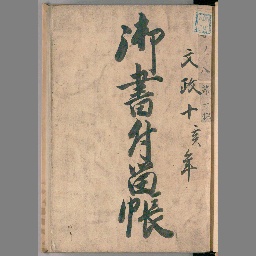 文政十亥年
御書付留帳